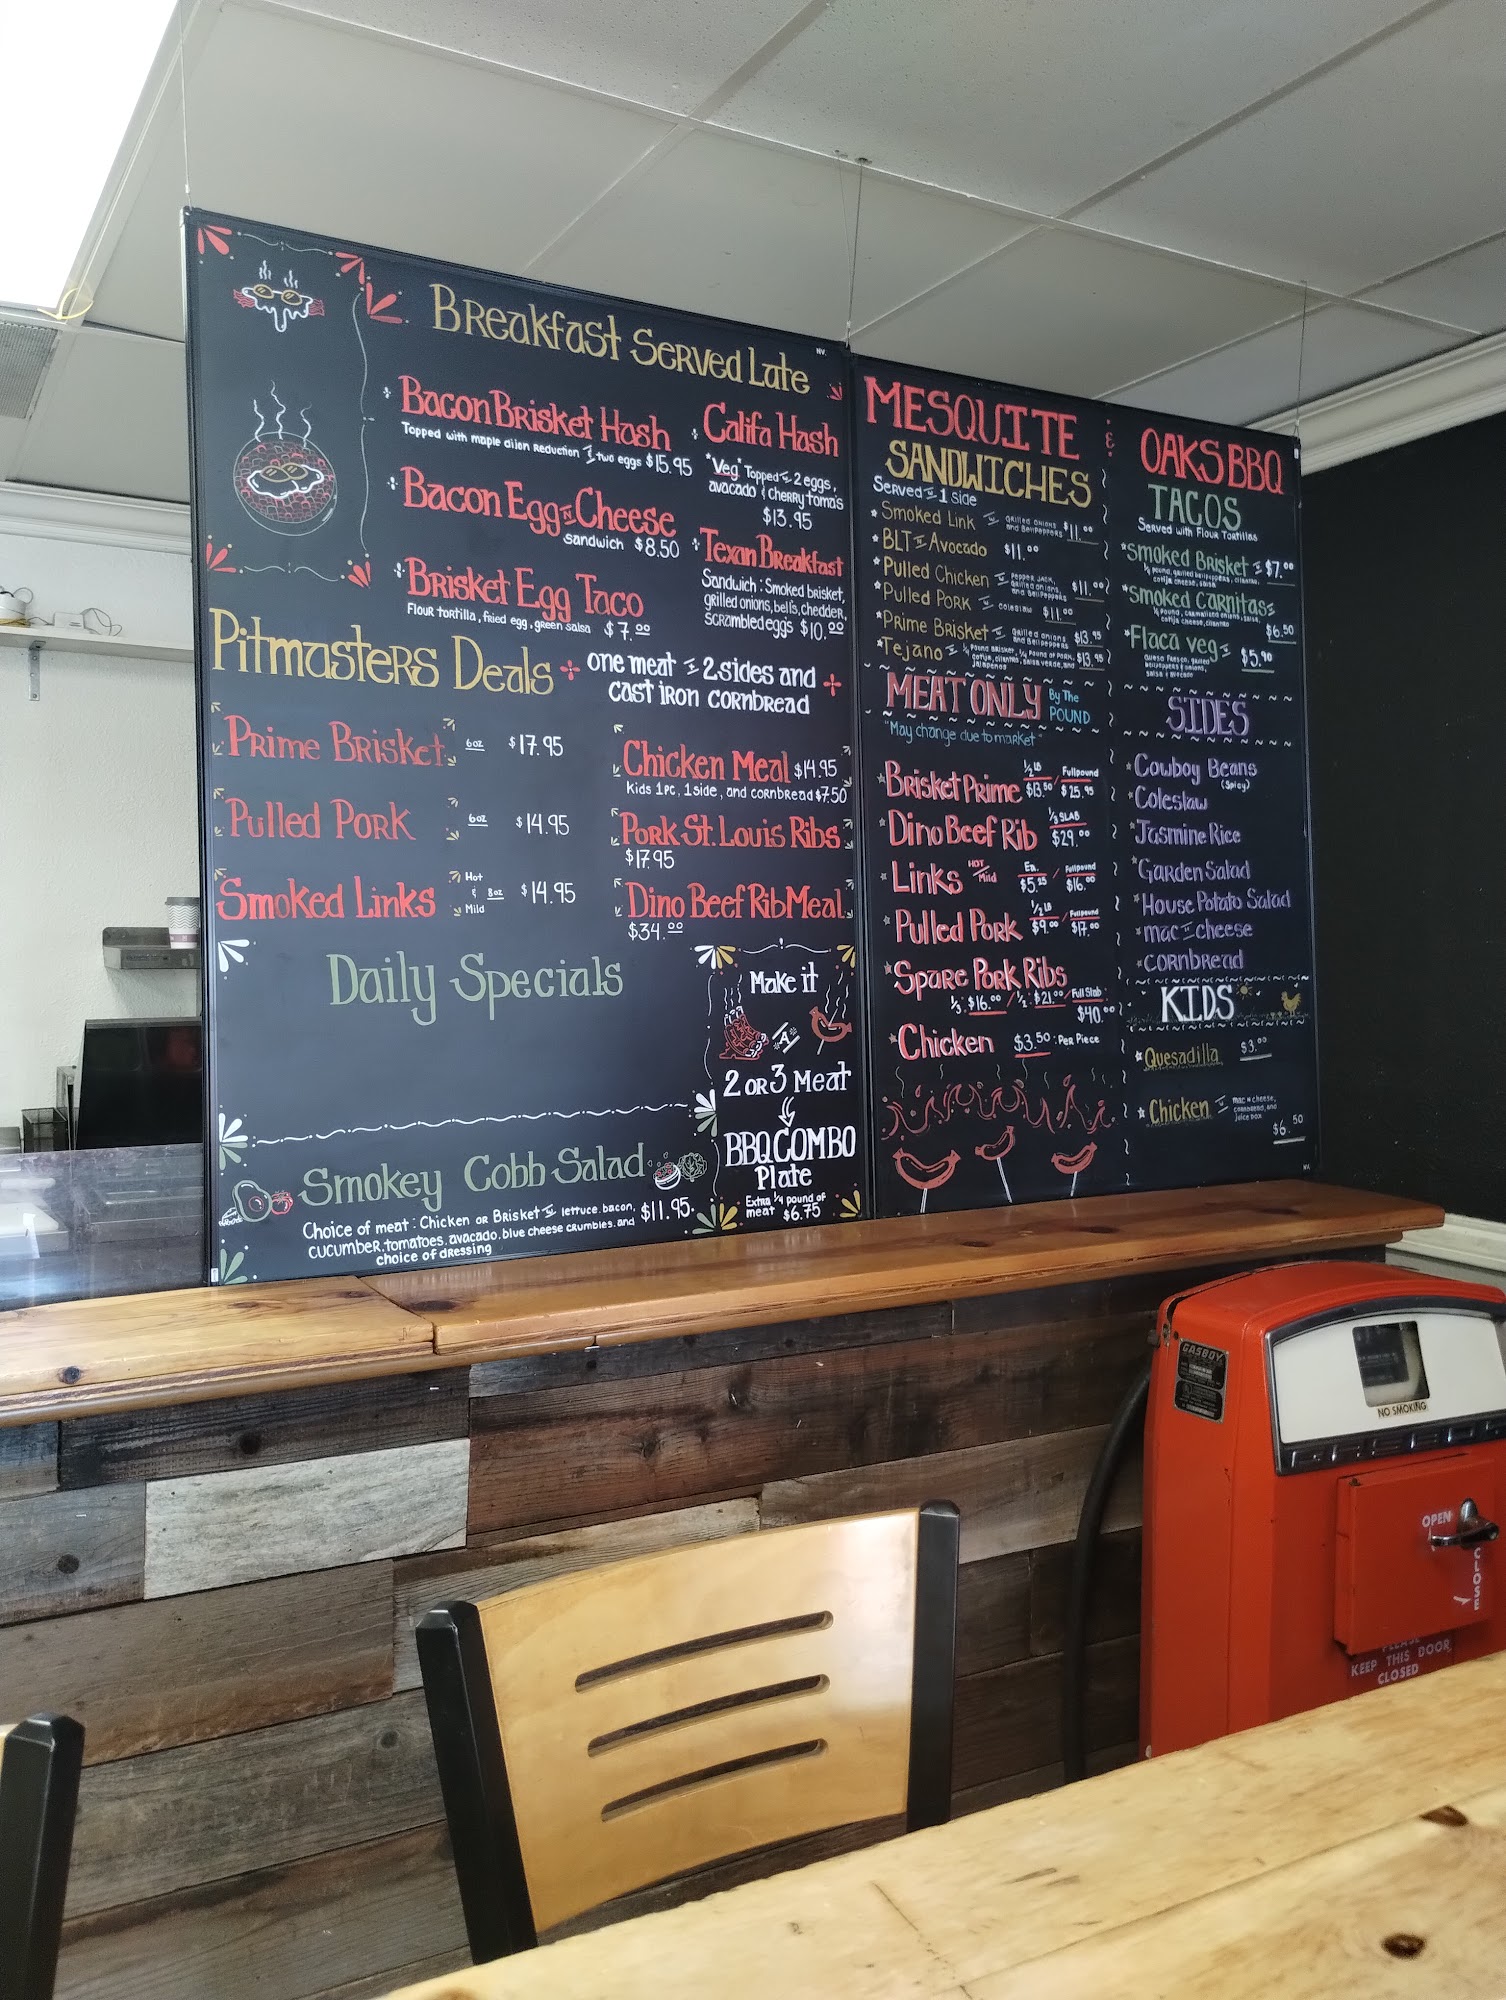 Breakfast Served Late
NV.
Bacon Brisket Hash
Topped with maple dijon reduction & two eggs $15.95
Bacon Egg N Cheese
sandwich $8.50
Brisket Egg Taco
Flour tortilla, fried egg, green salsa $7.00
Califa Hash
"Veg" Topped w 2 eggs,
avacado & cherry toma's
$13.95
Texan Breakfast
Sandwich: Smoked brisket,
grilled onions, bell's, chedder,
scrambled eggs $10.00
Pitmasters Deals
one meat w 2 sides and
cast iron cornbread
Prime Brisket 6oz $17.95
Pulled Pork 6oz $14.95
Smoked Links Hot & Mild 8oz $14.95
Chicken Meal $14.95
Kids 1pc, 1side, and cornbread $7.50
Pork St. Louis Ribs
$17.95
Dino Beef Rib Meal
$34.00
Daily Specials
Make it
A
2 or 3 Meat
BBQ COMBO
Plate
Extra 1/4 pound of
meat $6.75
Smokey Cobb Salad
Choice of meat: Chicken or Brisket w lettuce, bacon, $11.95
cucumber, tomatoes, avacado, blue cheese crumbles, and
choice of dressing
MESQUITE &
OAKS BBQ
SANDWICHES
Served w 1 side
Smoked Link w grilled onions and Bellpeppers $11.00
BLT w Avocado $11.00
Pulled Chicken w Pepper Jack, grilled onions, and Bellpeppers $11.00
Pulled Pork w coleslaw $11.00
Prime Brisket w grilled onions and Bellpeppers $13.95
Tejano w 1/4 Pound Brisket, 1/4 Pound of Pork, cotija, cilantro, salsa verde, and jalapeños $13.95
MEAT ONLY By The POUND
"May change due to market"
Brisket Prime 1/2 LB $13.50 / Fullpound $25.95
Dino Beef Rib 1/3 SLAB $29.00
Links HOT Mild Ea. $5.25 / Fullpound $16.00
Pulled Pork 1/2 LB $9.00 / Fullpound $17.00
Spare Pork Ribs
1/3: $16.00 / 1/2: $21.00 / Full Slab: $40.00
Chicken $3.50: Per Piece
TACOS
Served with Flour Tortillas
Smoked Brisket w $7.00
1/4 pound, grilled bellpeppers, cilantro,
cotija cheese, salsa
Smoked Carnitas w
1/4 pound, carmalized onions, salsa,
cotija cheese, cilantro $6.50
Flaca Veg w $5.90
queso fresco, grilled
bellpeppers & onions,
salsa & avocado
SIDES
Cowboy Beans
(Spicy)
Coleslaw
Jasmine Rice
Garden Salad
House Potato Salad
mac N cheese
cornbread
KIDS
Quesadilla $3.00
Chicken w mac n cheese, cornbread, and juice box
$6.50
NV.
GASBOY
NO SMOKING
GASBOY
OPEN
CLOSE
PLEASE
KEEP THIS DOOR
CLOSED